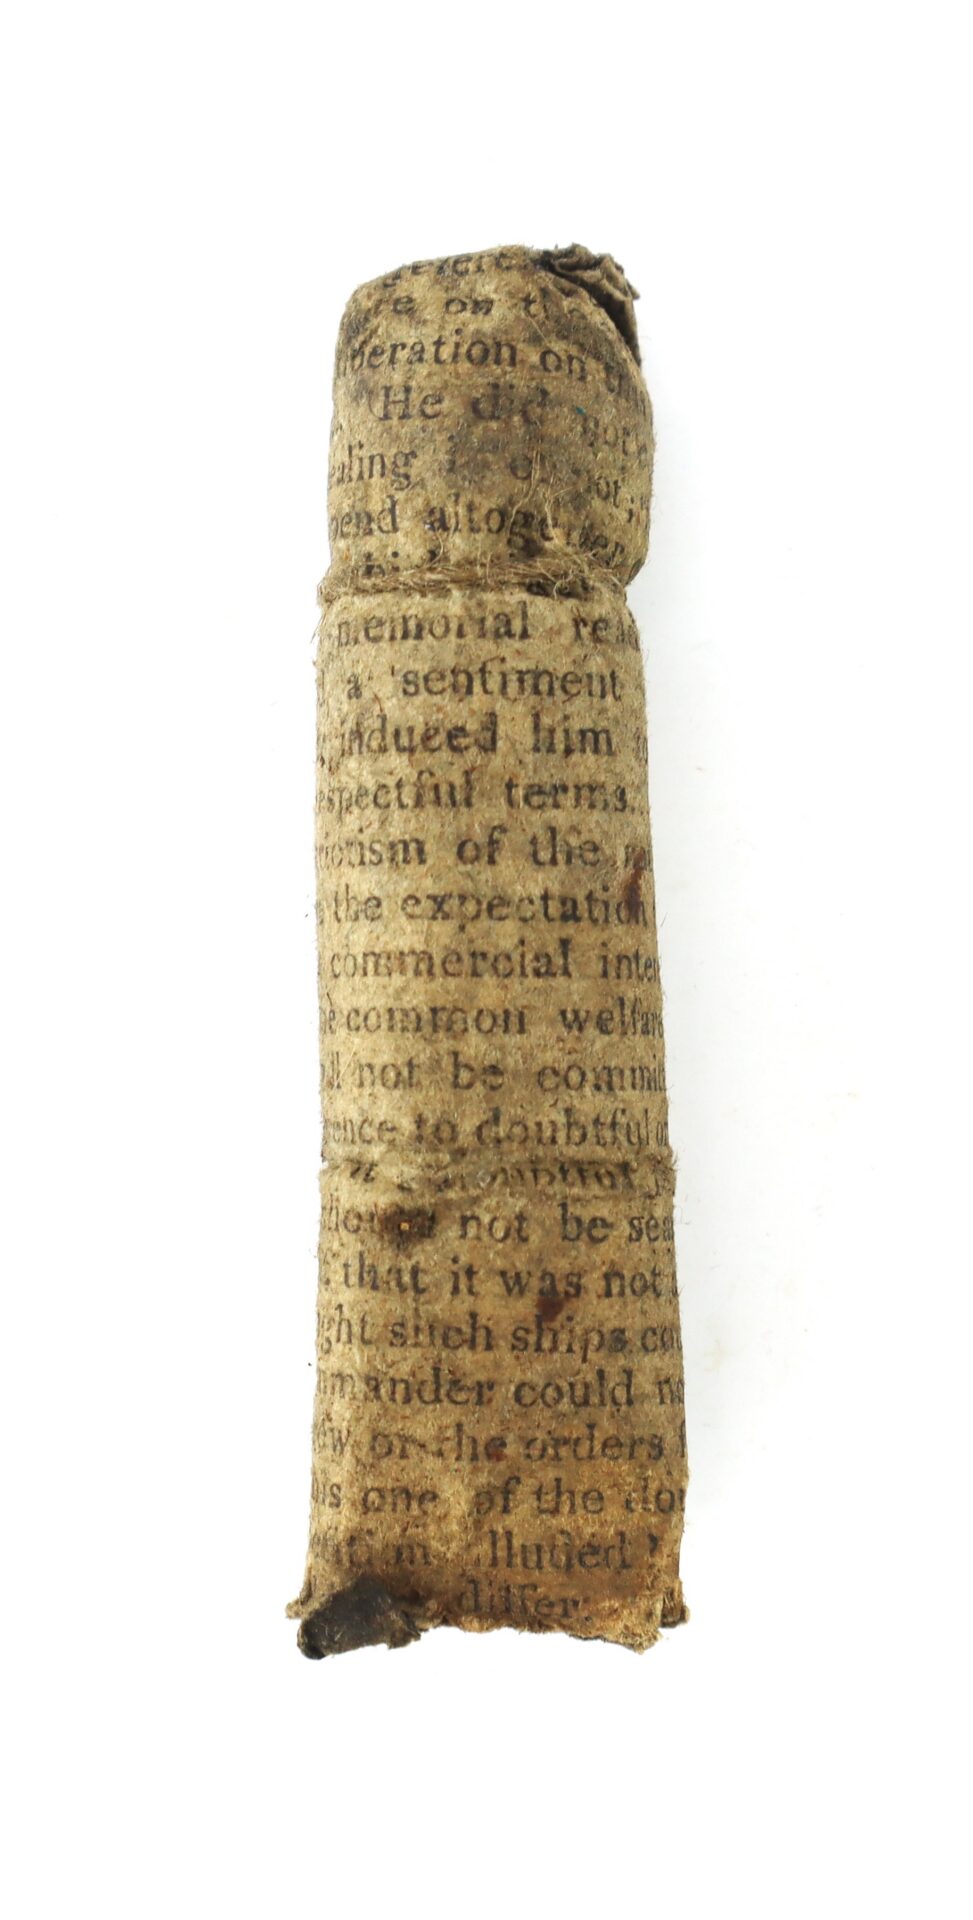 re on the
peration on
He did not
ealing is or not;
pend altogether
memorial rea
a sentiment
induced him
espectful terms.
otism of the
the expectation
commercial inter
e common welfare
ll not be commit
rence to doubtful or
not be sea
that it was not
ght such ships co
mmander could no
ew or the orders f
as one of the dou
alluded
differ